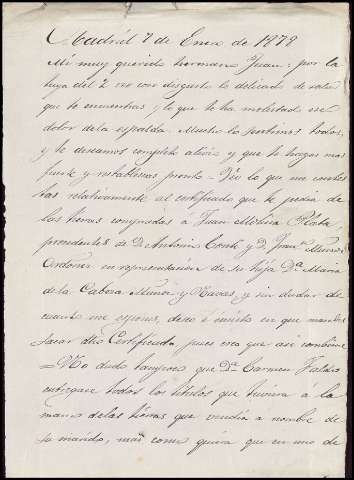 Madrid 7 de Enero de 1878
Mi muy querido hermano Juan: por la
tuya del 2 veo con disgusto lo delicado de salud
que te encuentras y lo que te ha molestado ese
dolor de la espalda. Mucho lo sentimos todos,
y te deseamos completo alivio y que te hagas mas
fuerte y restablezcas pronto = Veo lo que me contes
tas relativamente al certificado que te pedia de
las tierras compradas á Juan Molina Plata,
procedentes de D. Antonio Conde y D. Franco. Muñoz
en representacion de su hija Da. Maria
de la Cabeza Muñoz y Navas, y sin dudar de
cuanto me espones, deseo é insisto en que mandes
sacar dho Certificado, pues creo que asi combiene
= No dudo tampoco que Da. Carmen Valdes
entregase todos los titulos que tuviera á la
mano de las tierras que vendia á nombre de
su marido, mas como quiera que en uno de